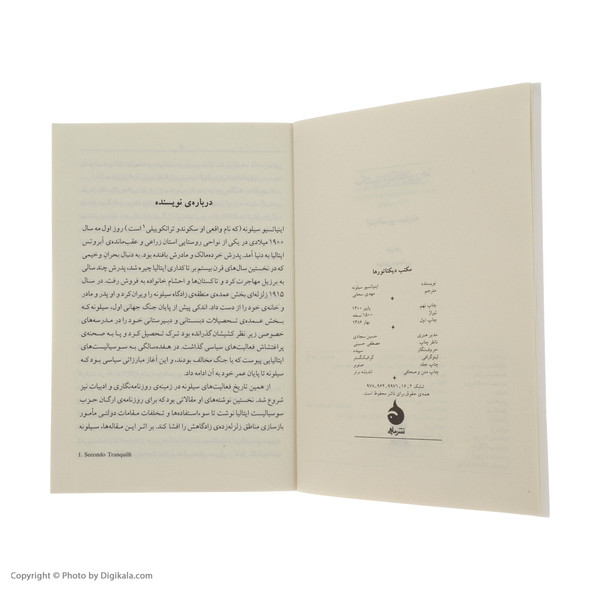 مکتب دیکتاتورها
نویسنده اینیاتسیو سیلونه
مترجم مهدی سحابی
چاپ نهم پاییز ۱۴۰۰
تیراژ ۱۵۰۰ نسخه
چاپ اول بهار ۱۳۸۶
مدیر هنری حسین سجادی
ناظر چاپ مصطفی حسینی
حروف‌نگار سپیده
لیتوگرافی گرافیک‌گستر
چاپ جلد صنوبر
چاپ متن و صحافی اندیشه برتر
همه‌ی حقوق برای ناشر محفوظ است
نشر ماهی
درباره‌ی نویسنده
اینیاتسیو سیلونه (که نام واقعی او سکوندو ترانکوییلی۱ است) روز اول مه سال
۱۹۰۰ میلادی در یکی از نواحی روستایی استان زراعی و عقب‌مانده‌ی آبروتس
ایتالیا به دنیا آمد. پدرش خرده‌مالک و مادرش بافنده بود. به دنبال بحران وخیمی
که در نخستین سال‌های قرن بیستم بر تاکداری ایتالیا چیره شد، پدرش چند سالی
به برزیل مهاجرت کرد و تاکستان‌ها و احشام خانواده به فروش رفت. در سال
۱۹۱۵ زلزله‌ای بخش عمده‌ی منطقه‌ی زادگاه سیلونه را ویران کرد و او پدر و مادر
و خانه‌ی خود را از دست داد. اندکی پیش از پایان جنگ جهانی اول، سیلونه که
بخش عمده‌ی تحصیلات دبستانی و دبیرستانی خود را در مدرسه‌های
خصوصی زیر نظر کشیشان گذرانده بود ترک تحصیل کرد و پا به صحنه‌ی
پراغتشاش فعالیت‌های سیاسی گذاشت. در هفده‌سالگی به سوسیالیست‌های
ایتالیایی پیوست که با جنگ مخالف بودند، و این آغاز مبارزاتی سیاسی بود که
سیلونه تا پایان عمر خود به آن ادامه داد.
از همین تاریخ فعالیت‌های سیلونه در زمینه‌ی روزنامه‌نگاری و ادبیات نیز
شروع شد. نخستین نوشته‌های او مقالاتی بود که برای روزنامه‌ی ارگان حزب
سوسیالیست ایتالیا نوشت تا سوءاستفاده‌ها و تخلفات مقامات دولتی مأمور
بازسازی مناطق زلزله‌زده‌ی زادگاهش را افشا کند. بر اثر این مقاله‌ها، سیلونه
1. Secondo Tranquilli
Copyright © Photo by Digikala.com